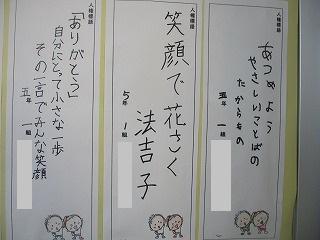 人権標語
あつめよう
やさしいことばの
たからもの
五年 一組
人権標語
笑顔で花さく
法吉子
5年 1組
人権標語
「ありがとう」
自分にとって小さな一歩
その一言でみんな笑顔
五年 一組